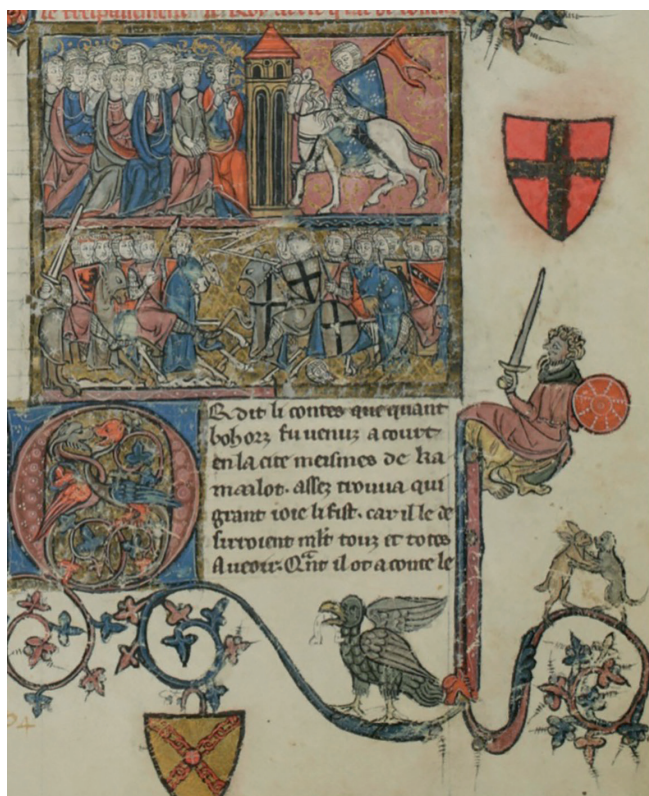 OR dit li contes que quant
bohorz fu uenuz a court
en la cite meismes de ka
maalot. assez trouua qui
grant ioie li fist. car il le de
sirroient mlt touz et totes
A ueoir. Qant il ot a conte le